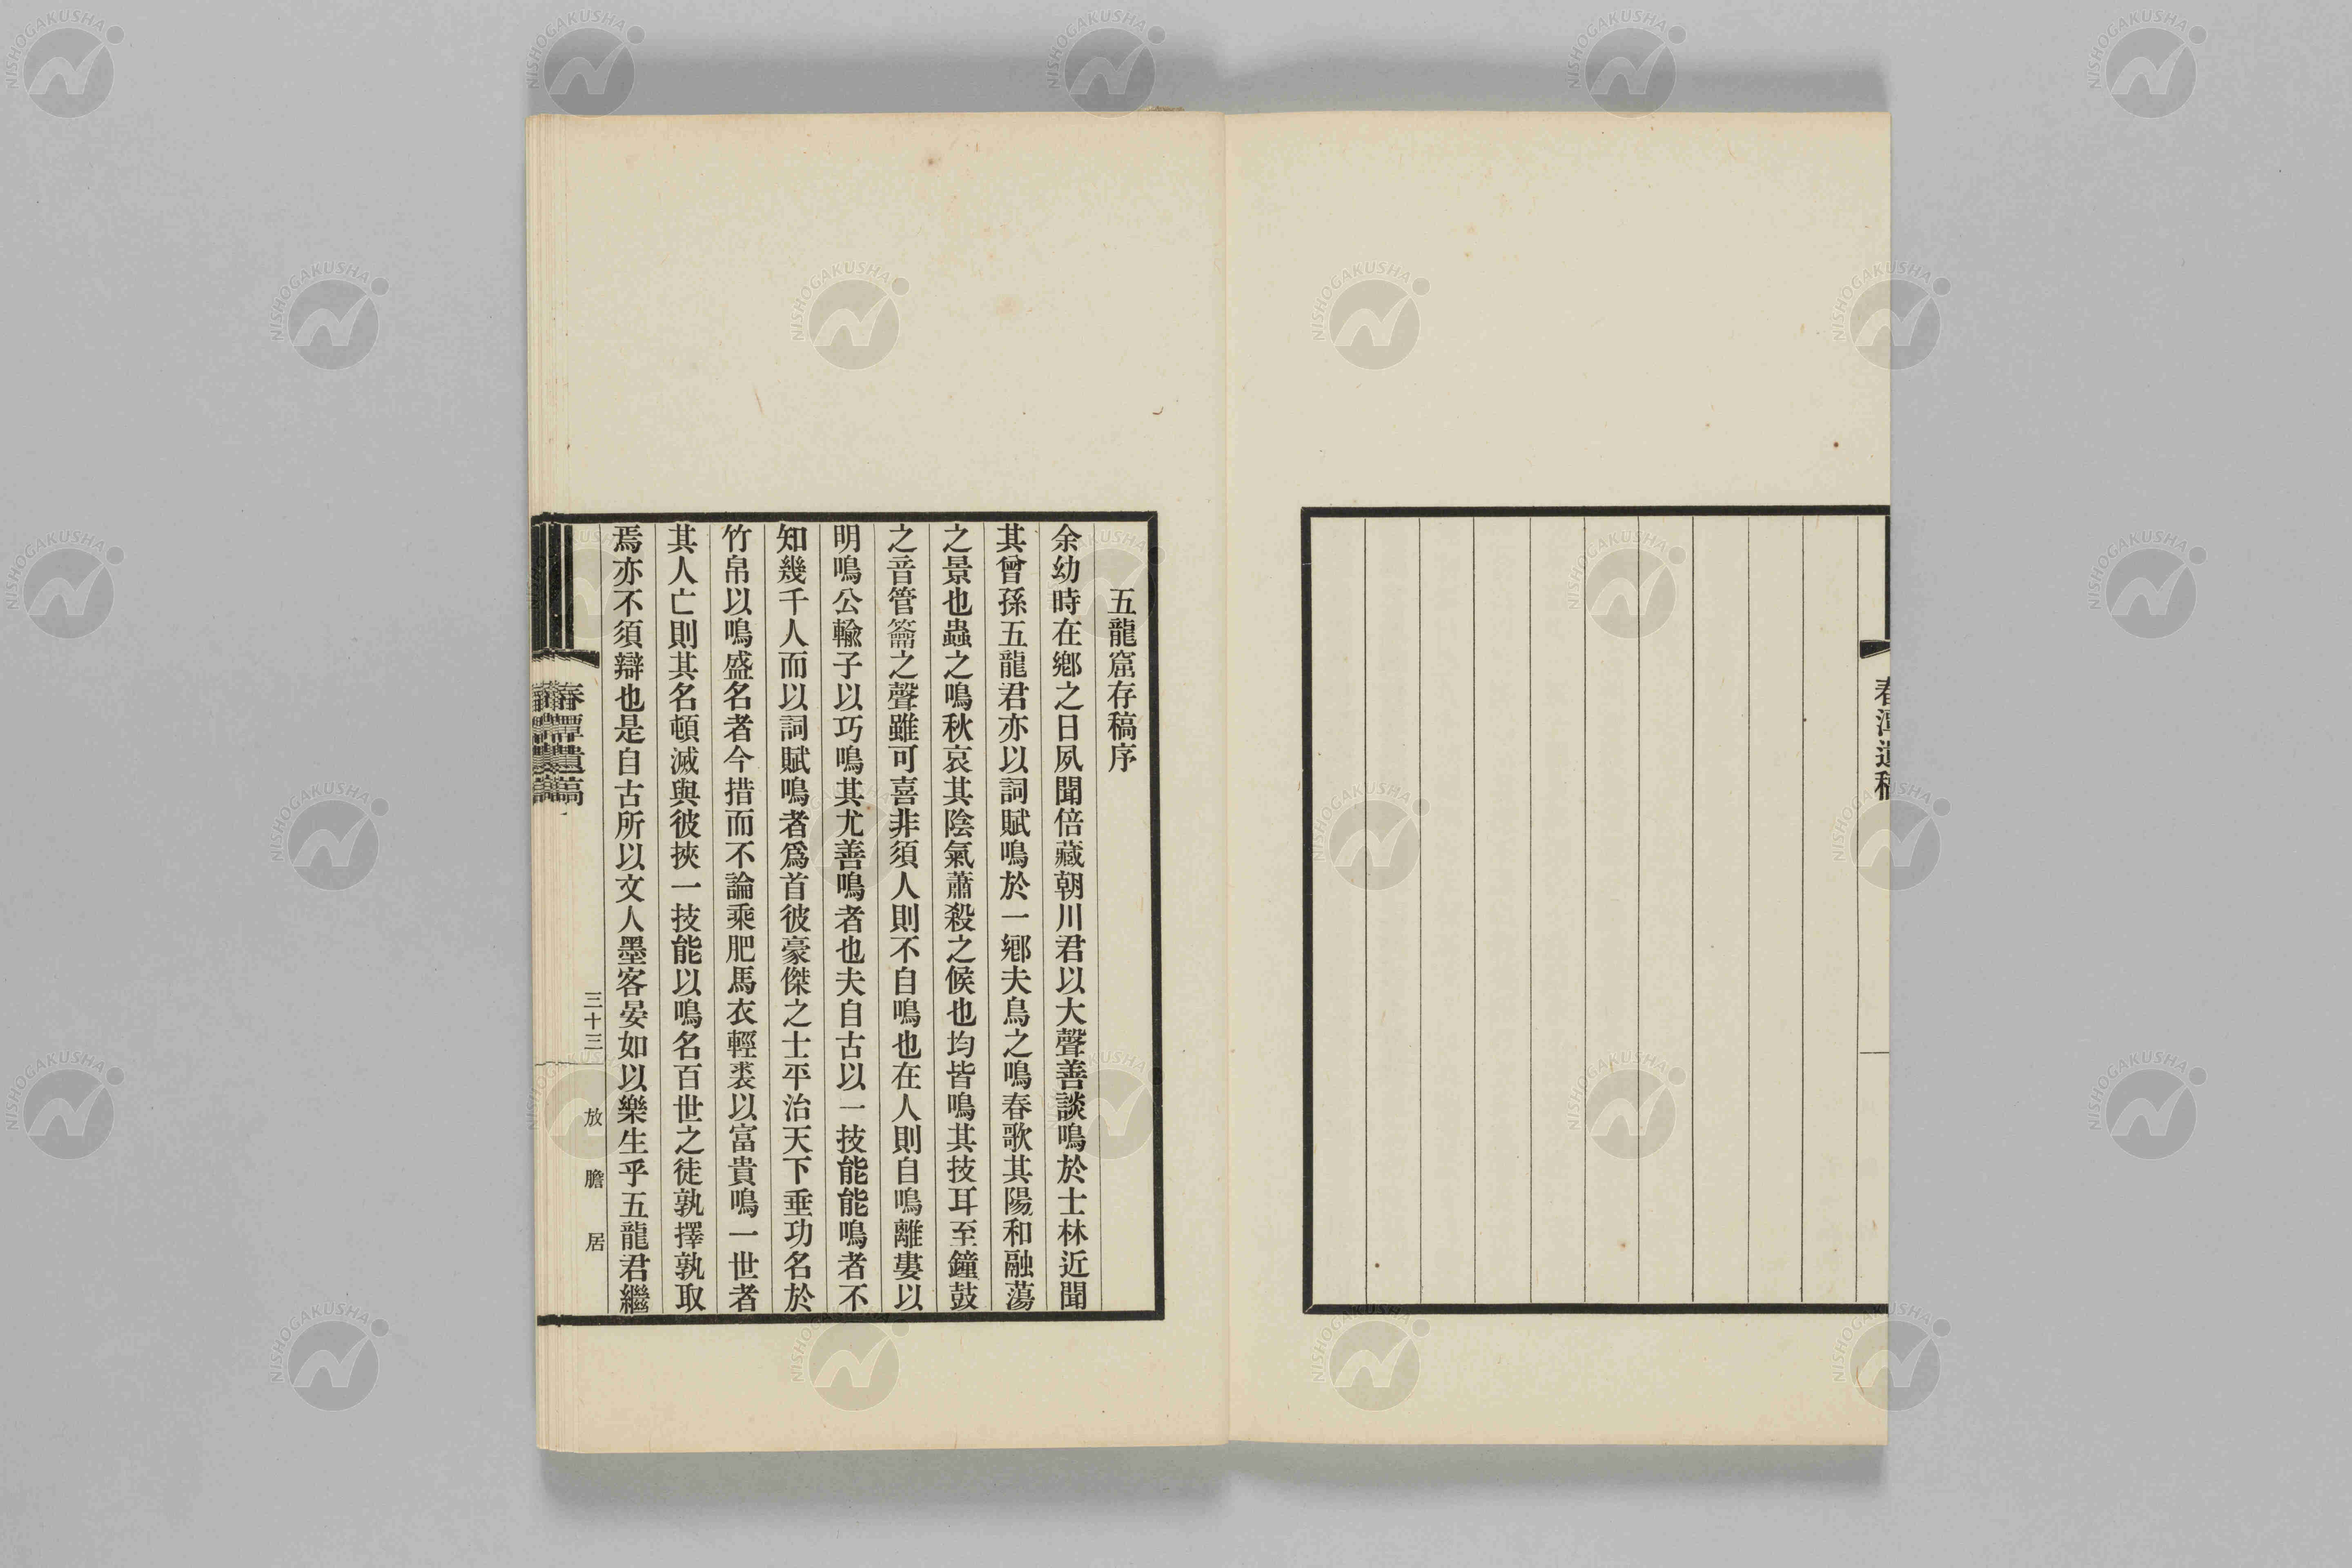 春潭遺稿
五龍窟存稿序
余幼時在鄕之日夙聞倍藏朝川君以大聲善談鳴於士林近聞
其曾孫五龍君亦以詞賦鳴於一鄕夫鳥之鳴春歌其陽和融蕩
之景也蟲之鳴秋哀其陰氣蕭殺之候也均皆鳴其技耳至鐘鼓
之音管籥之聲雖可喜非須人則不自鳴也在人則自鳴離婁以
明鳴公輸子以巧鳴其尤善鳴者也夫自古以一技能能鳴者不
知幾千人而以詞賦鳴者爲首彼豪傑之士平治天下垂功名於
竹帛以鳴盛名者今措而不論乘肥馬衣輕裘以富貴鳴一世者
其人亡則其名頓滅與彼挾一技能以鳴名百世之徒孰擇孰取
焉亦不須辯也是自古所以文人墨客晏如以樂生乎五龍君繼
春潭遺稿
三十三
放膽居
NISHOGAKUSHA